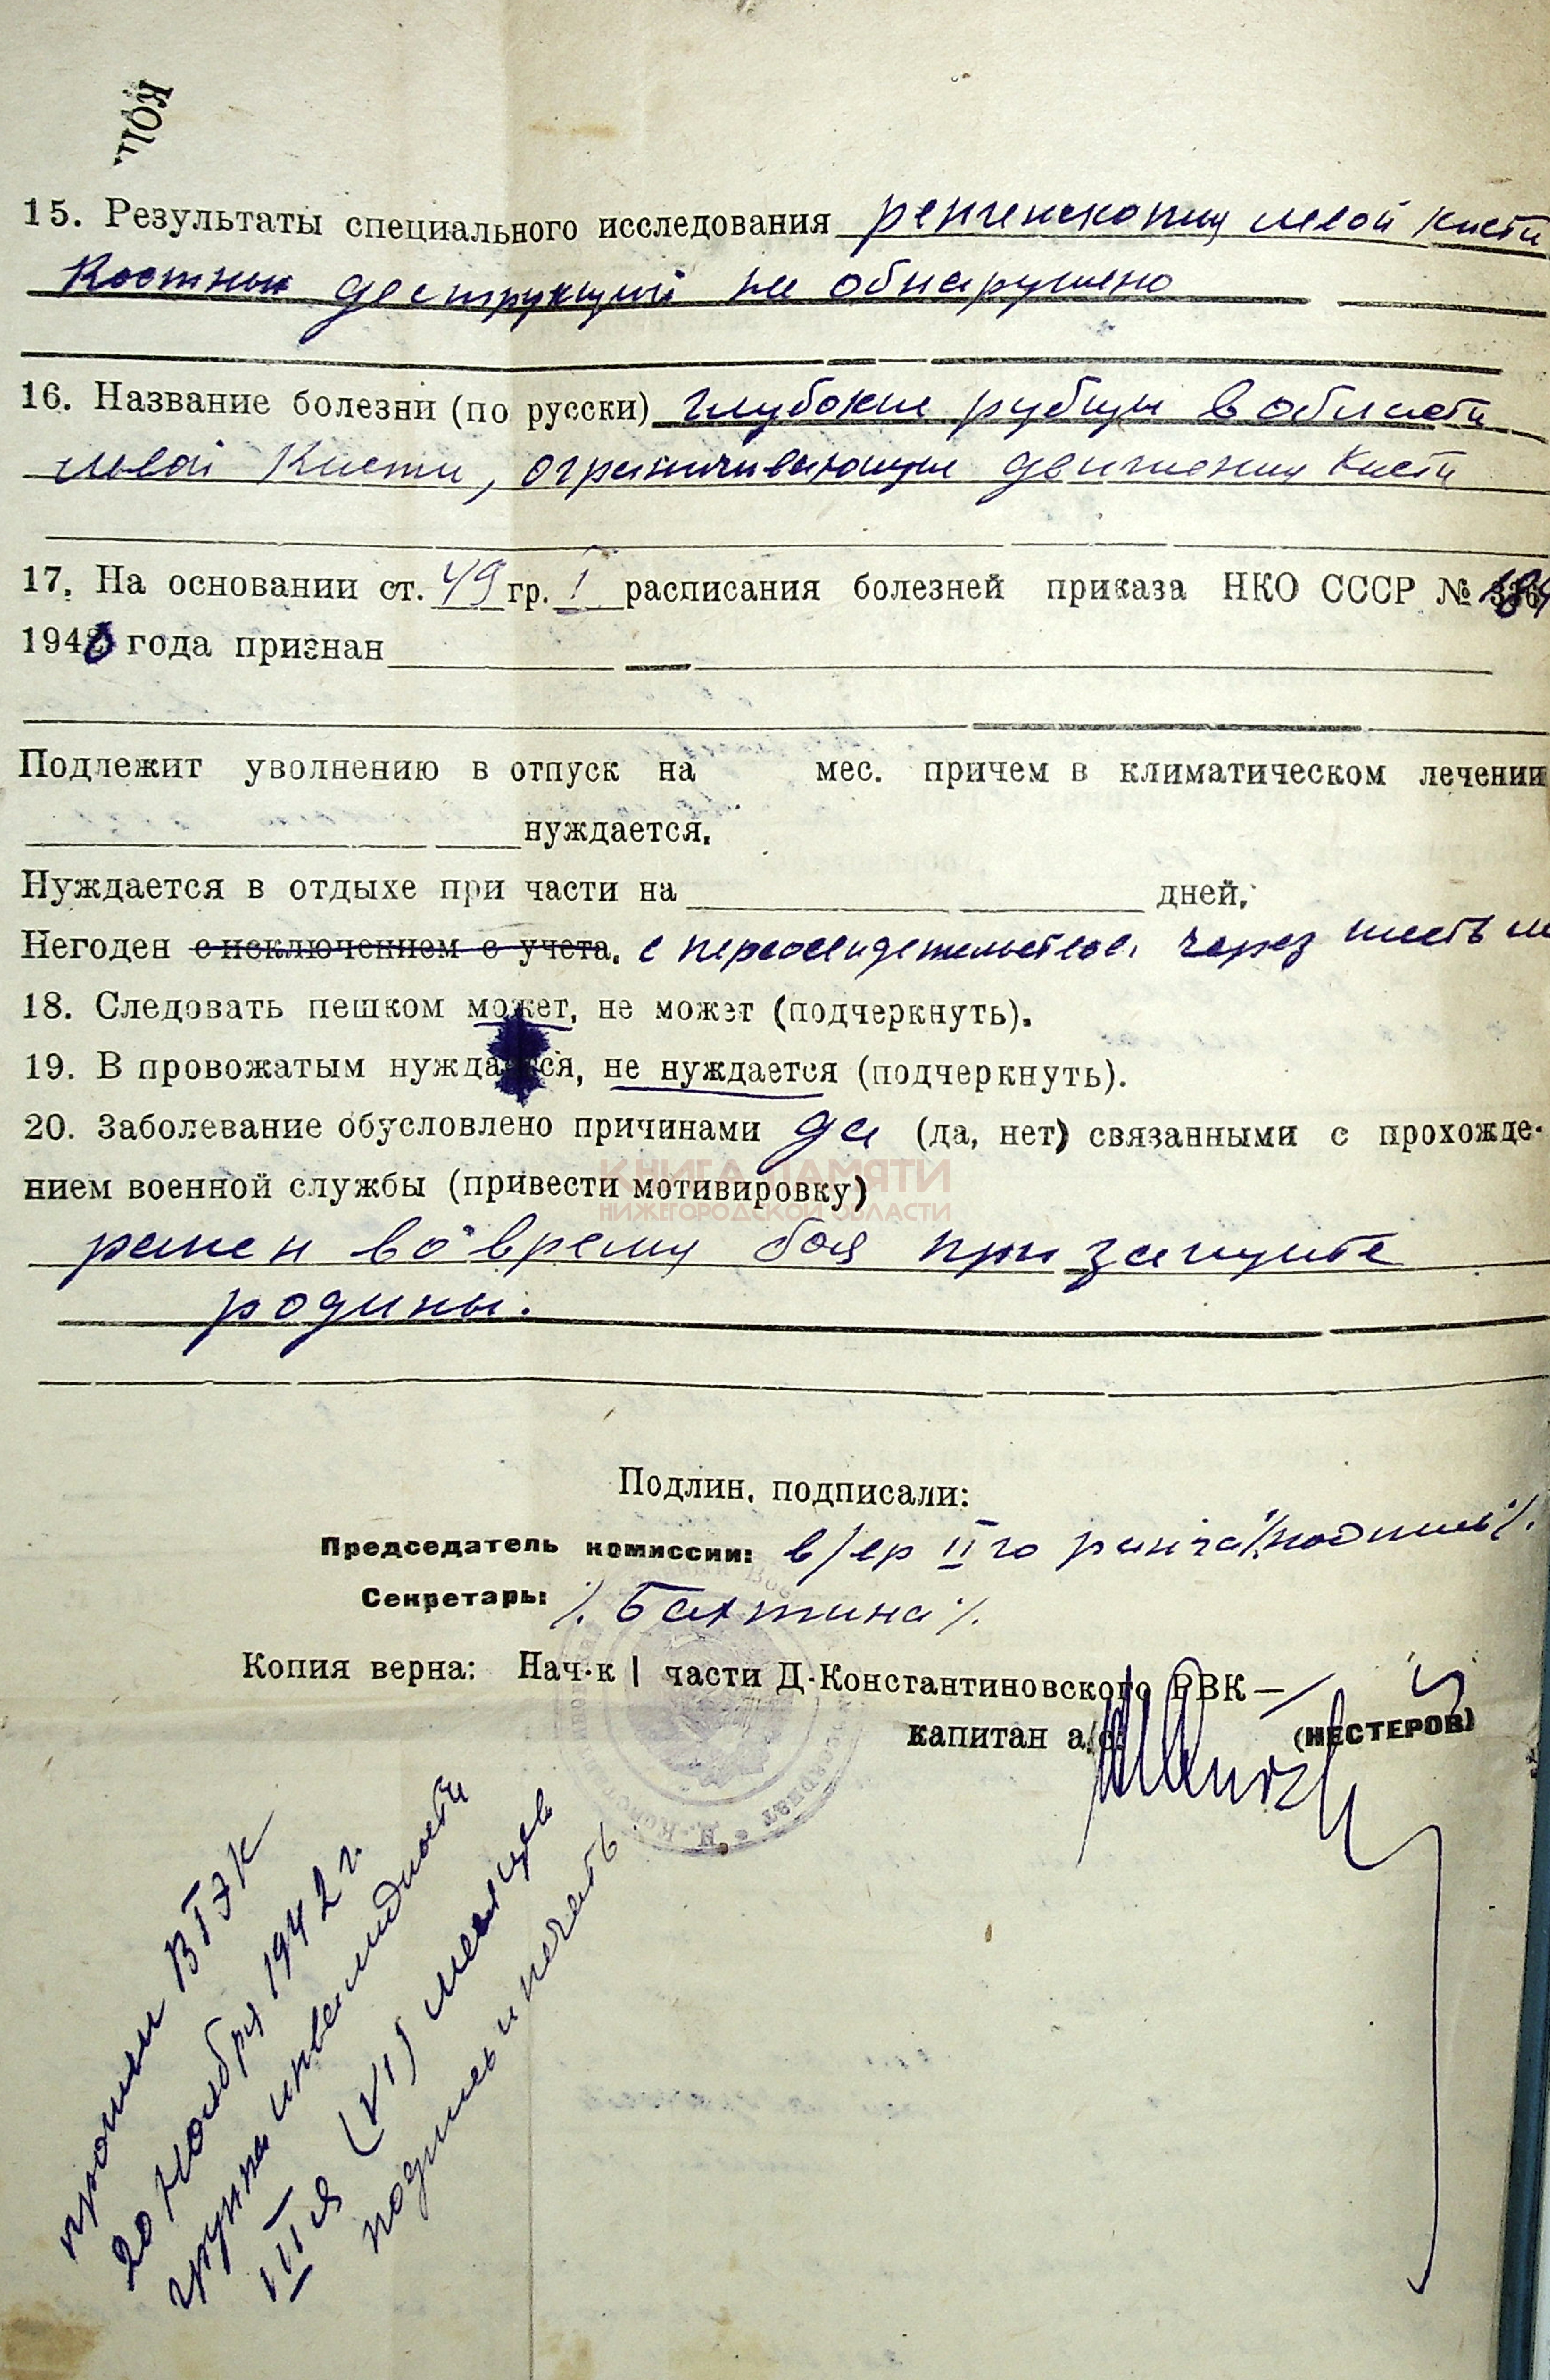 КОП
15. Результаты специального исследования рентгеноскопия левой кисти
костных деструкций не обнаружено
16. Название болезни (по русски) глубокие рубцы в области
левой кисти, ограничивающие движения кисти
17. На основании ст. 49 гр. I расписания болезней приказа НКО СССР №
1940 года признан
Подлежит уволнению в отпуск на мес. причем в климатическом лечении
нуждается.
Нуждается в отдыхе при части на дней.
Негоден с исключением с учета. с переосвидетельством через шесть м
18. Следовать пешком может, не может (подчеркнуть).
19. В провожатым нуждается, не нуждается (подчеркнуть).
20. Заболевание обусловлено причинами да (да, нет) связанными с прохожде-
нием военной службы (привести мотивировку)
КНИГА ПАМЯТИ
НИЖЕГОРОДСКОЙ ОБЛАСТИ
ранен во время боя при защите
родины.
Подлин. подписали:
Председатель комиссии: в/вр II го ранга /подпись/.
Секретарь: /. Бахтина /.
Копия верна: Нач-к 1 части Д-Константиновского РВК —
капитан а/с (НЕСТЕРОВ)
прошел ВТЭК
20 ноября 1942 г.
группа инвалидности
III я (VI) месяцев
подпись и печать